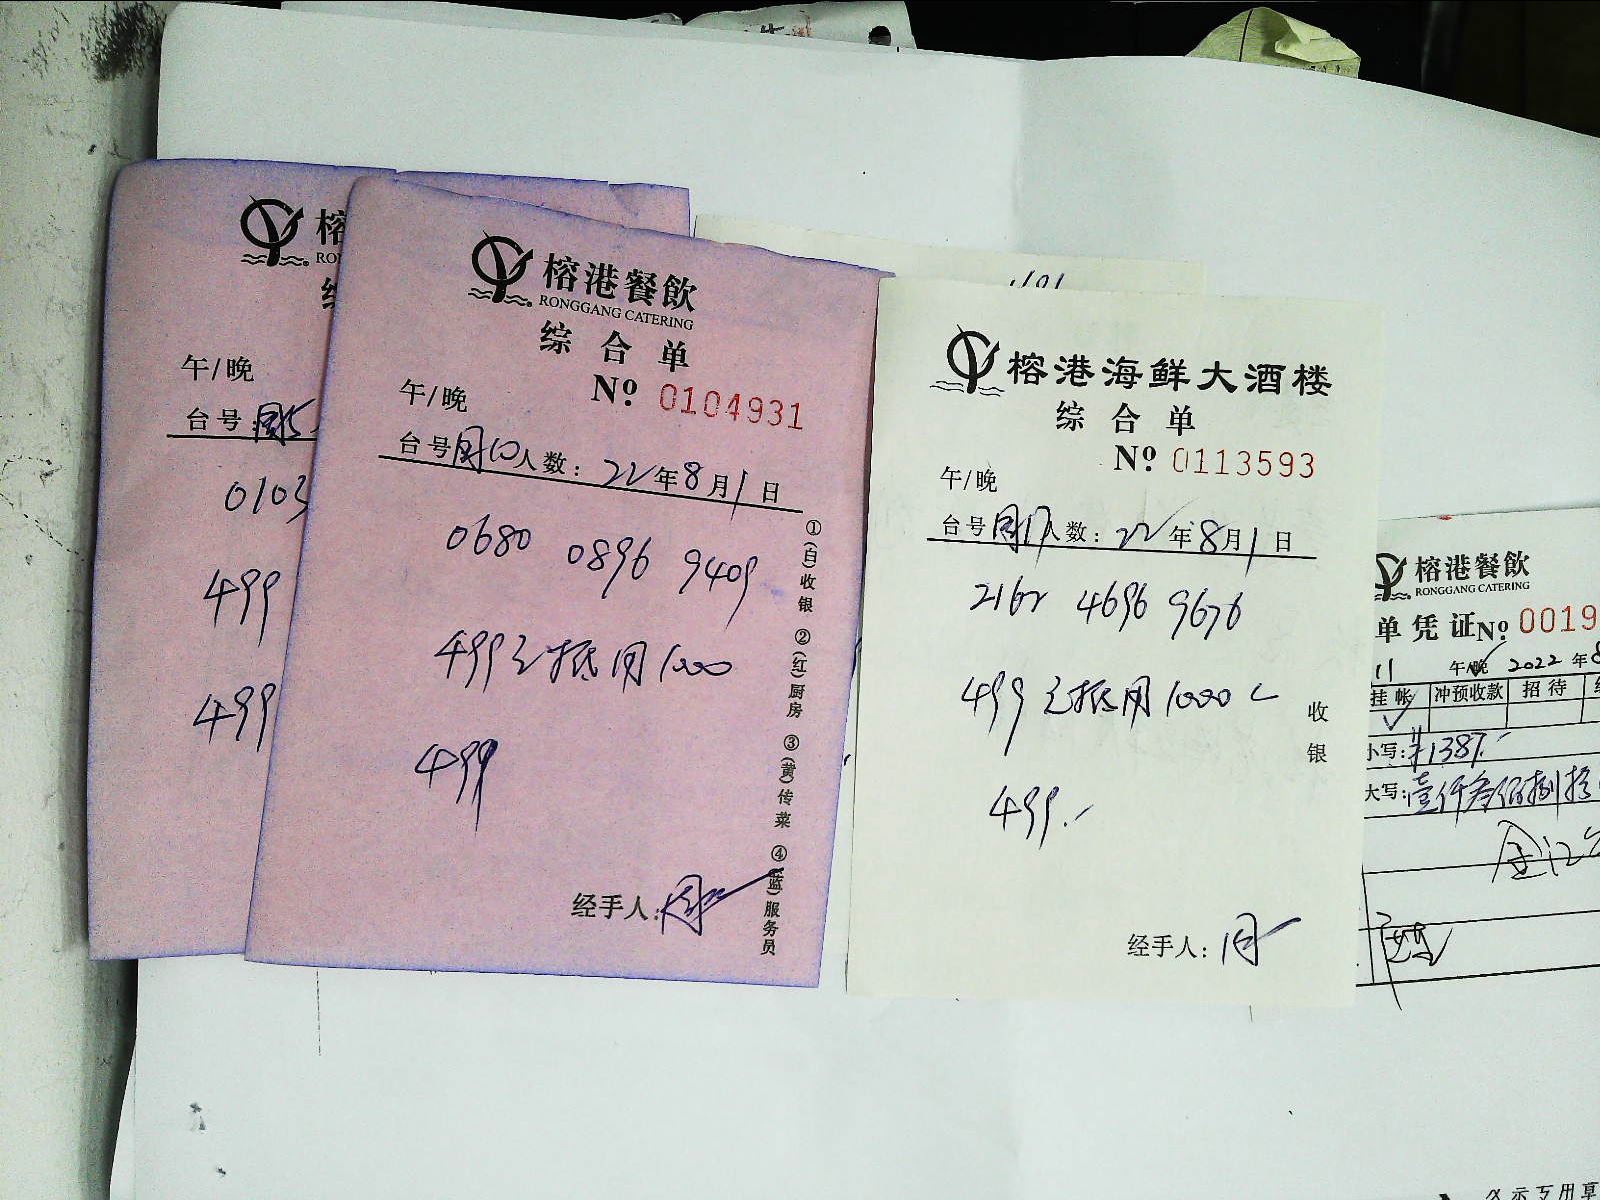 榕
午/晚
台号:
0103
499
499
榕港餐飲
RONGGANG CATERING
综合单
№ 0104931
午/晚
台号 周10 人数: 22年8月1日
0680 0896 9409
499元抵用1000
499
①(白)收银 ②(红)厨房 ③(黄)传菜 ④(蓝)服务员
经手人:周
榕港海鲜大酒楼
综合单
№ 0113593
午/晚
台号 周17 人数: 22年8月1日
2162 4696 9676
499元抵用1000
499.-
收银
经手人:周
榕港餐飲
RONGGANG CATERING
单凭证№ 0019
11 午/晚 2022年8
挂帐 冲预收款 招待
小写:¥1387.-
大写:壹仟叁佰捌拾